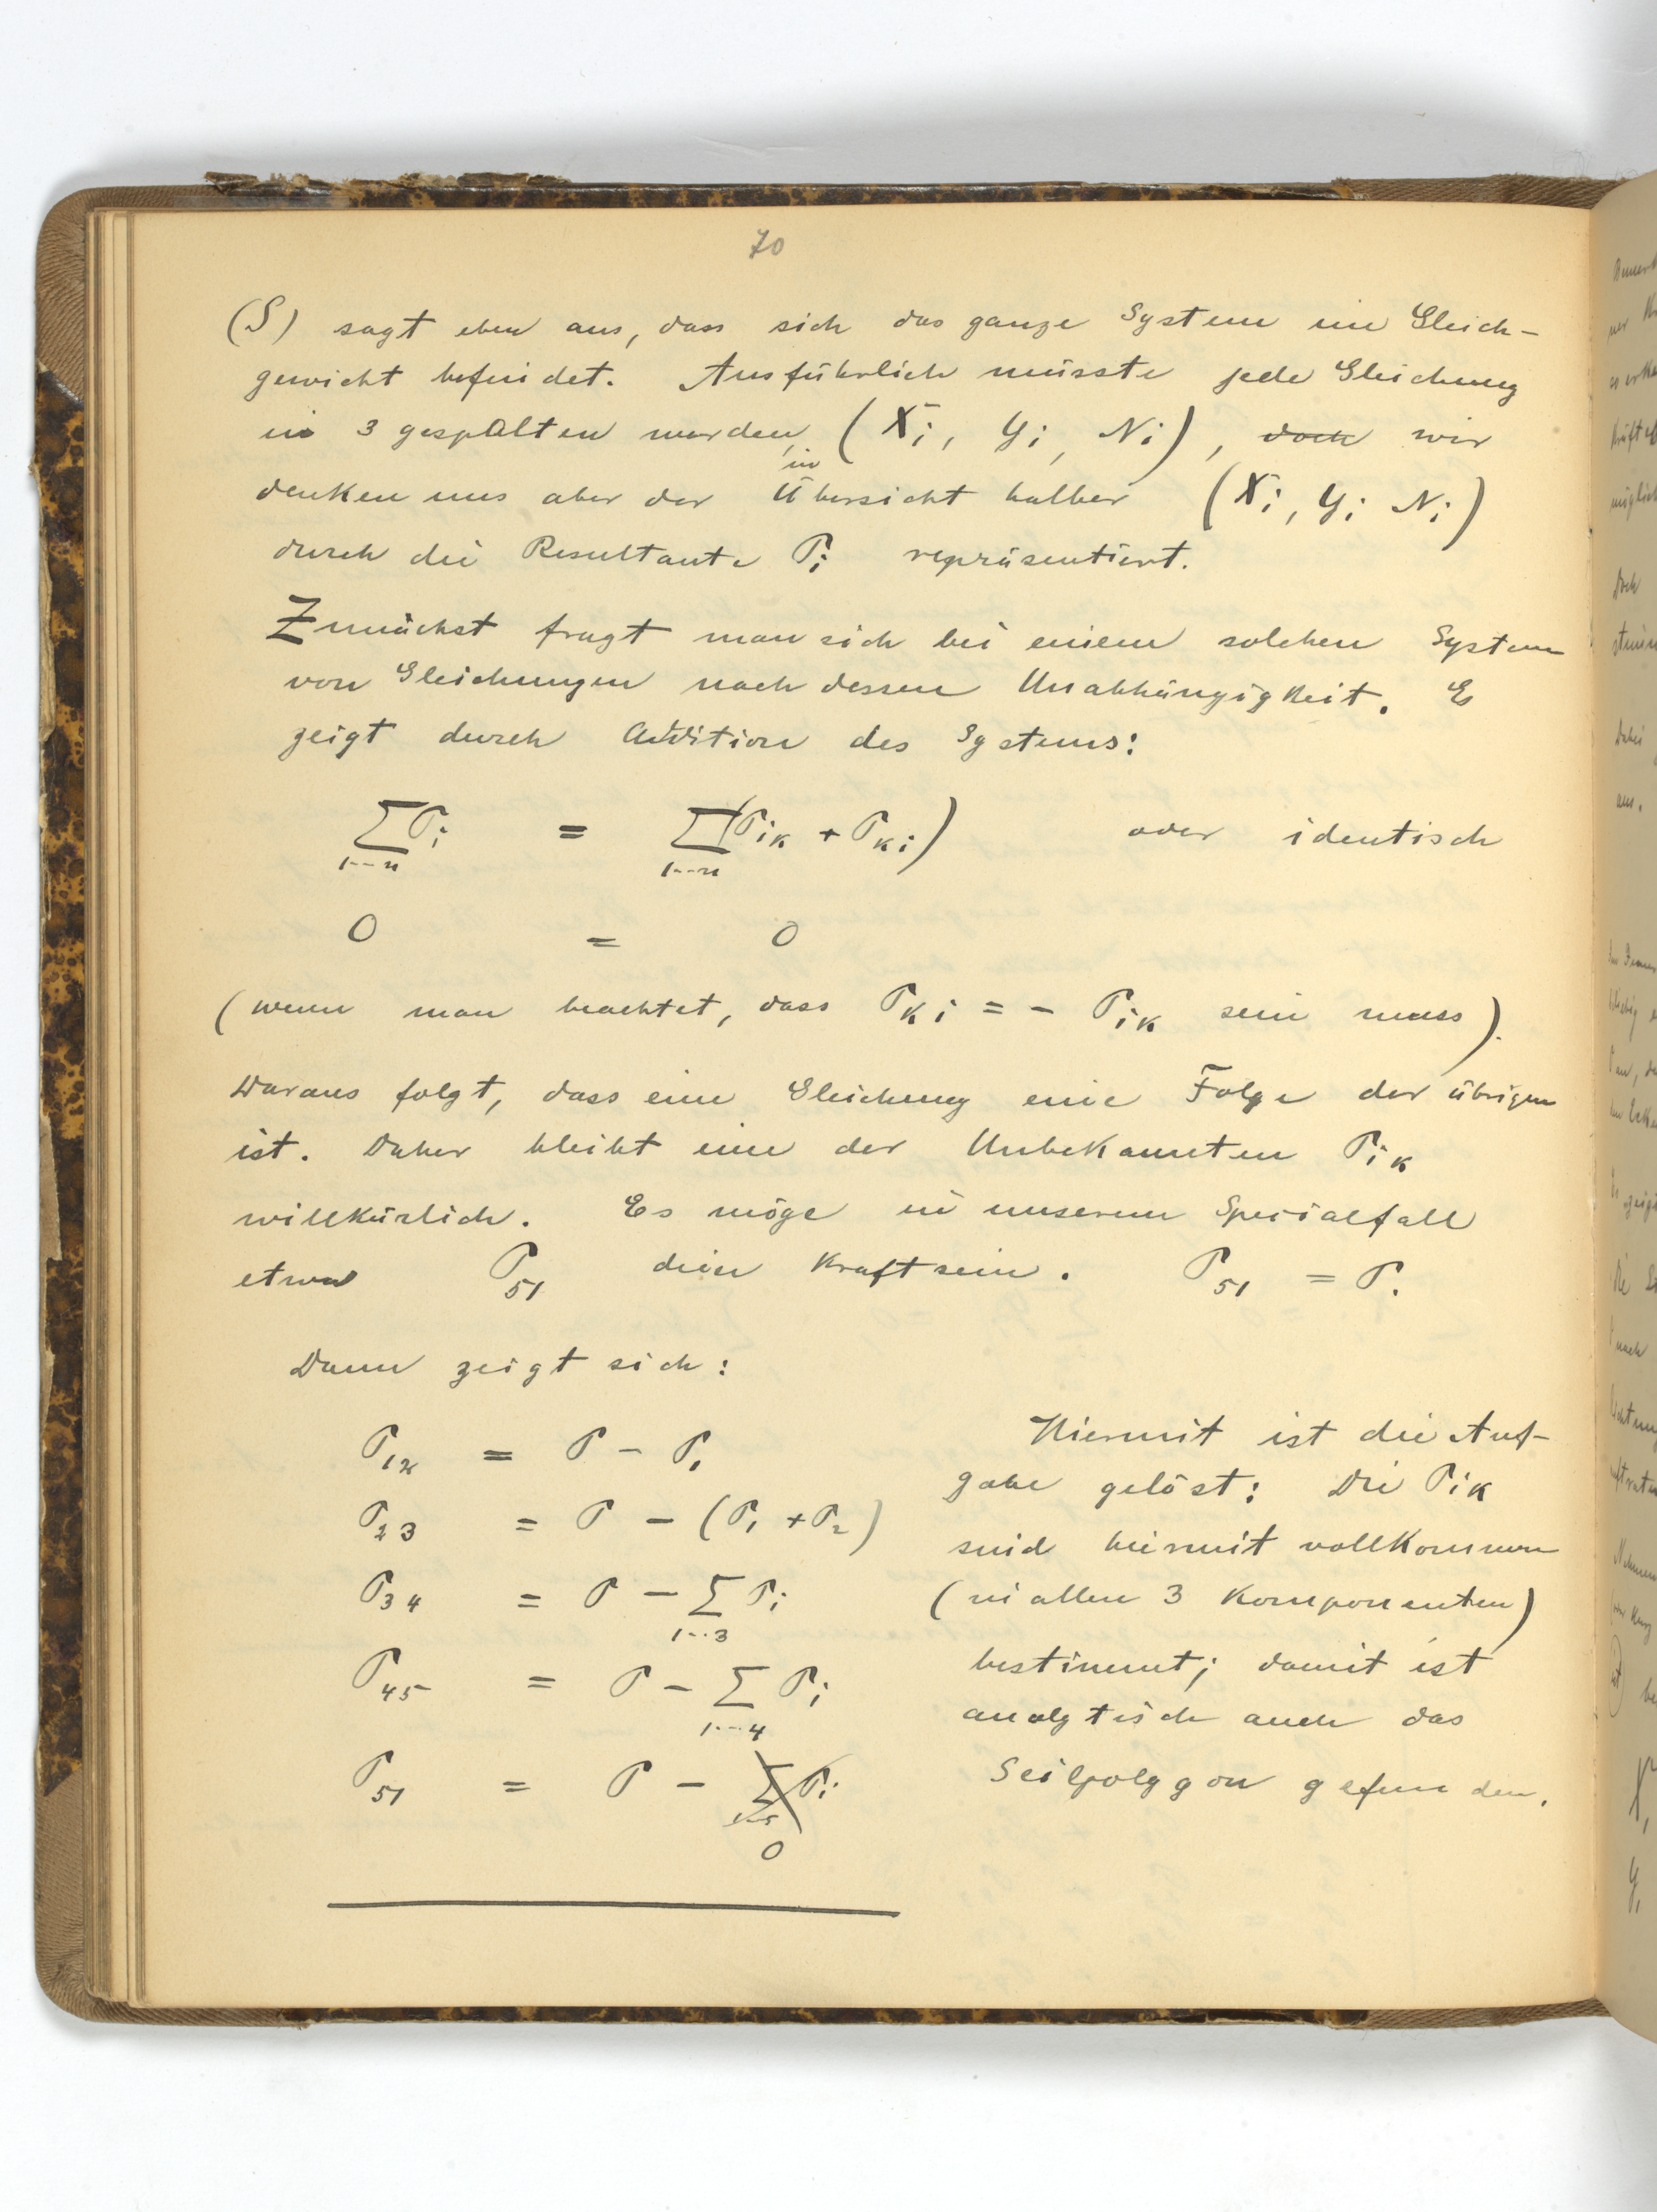 70
(S) sagt eben aus, dass sich das ganze System im Gleich-
gewicht befindet. Ausführlich müsste jede Gleichung
in 3 gespalten werden, (Xi, Yi, Ni), doch wir
denken uns aber der Übersicht halber in (Xi, Yi Ni)
durch die Resultante Pi repräsentiert.
Zunächst fragt man sich bei einem solchen System
von Gleichungen nach dessen Unabhängigkeit. Es
zeigt durch Addition des Systems:
∑ Pi = ∑ (Pik + Pki) oder identisch
1--n 1--n
0 = 0
(wenn man beachtet, dass Pki = - Pik sein muss).
Daraus folgt, dass eine Gleichung eine Folge der übrigen
ist. Daher bleibt eine der Unbekannten Pik
willkürlich. Es möge in unserem Spezialfall
etwa P51 diese Kraft sein. P51 = P.
Dann zeigt sich:
P12 = P - P1
P23 = P - (P1 + P2)
P34 = P - ∑ Pi
1--3
P45 = P - ∑ Pi
1---4
P51 = P - ∑ Pi
1--5
0
Hiermit ist die Auf-
gabe gelöst: Die Pik
sind hiermit vollkommen
(in allen 3 Komponenten)
bestimmt; damit ist
analytisch auch das
Seilpolygon gefunden.